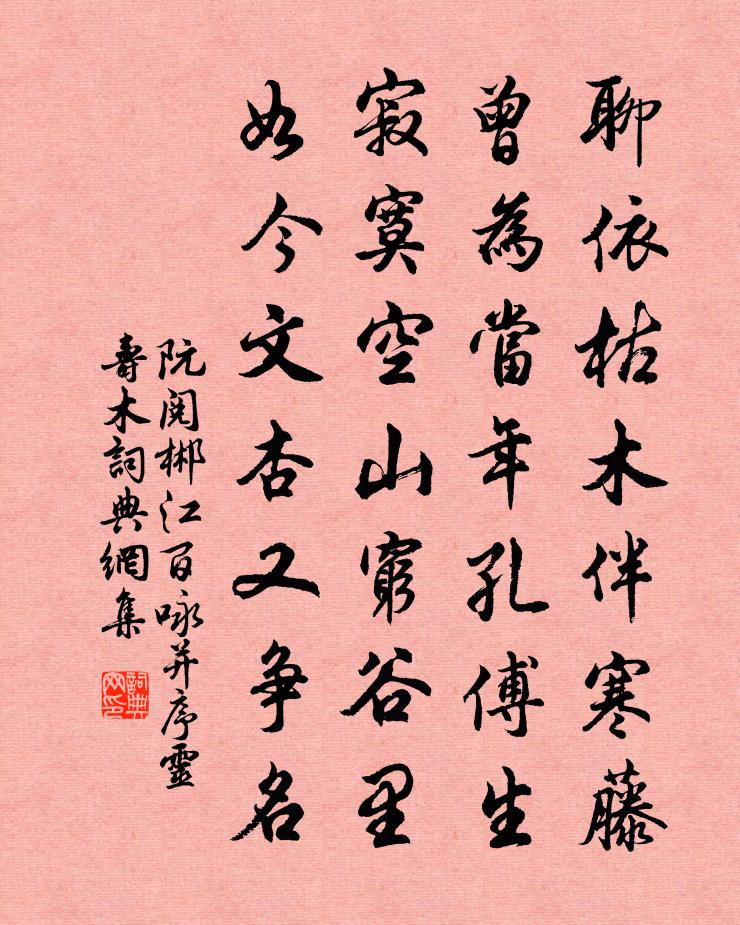 聊依枯木伴寒藤
曾為當年孔傅生
寂寞空山窮谷里
如今文杏又爭名
阮閱郴江百咏并序靈
壽木詞典網集
詞典網印